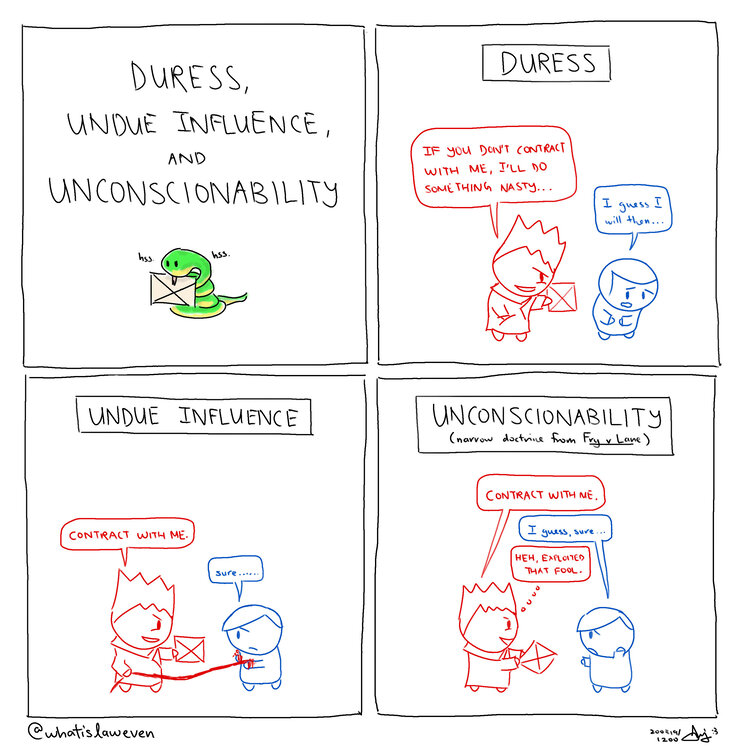 DURESS,
UNDUE INFLUENCE,
AND
UNCONSCIONABILITY
hss.
hss.
DURESS
IF YOU DON'T CONTRACT
WITH ME, I'LL DO
SOMETHING NASTY...
I guess I
will then...
UNDUE INFLUENCE
CONTRACT WITH ME.
sure......
UNCONSCIONABILITY
(narrow doctrine from Fry v Lane)
CONTRACT WITH ME.
I guess, sure...
HEH, EXPLOITED
THAT FOOL.
@whatislaweven
1200